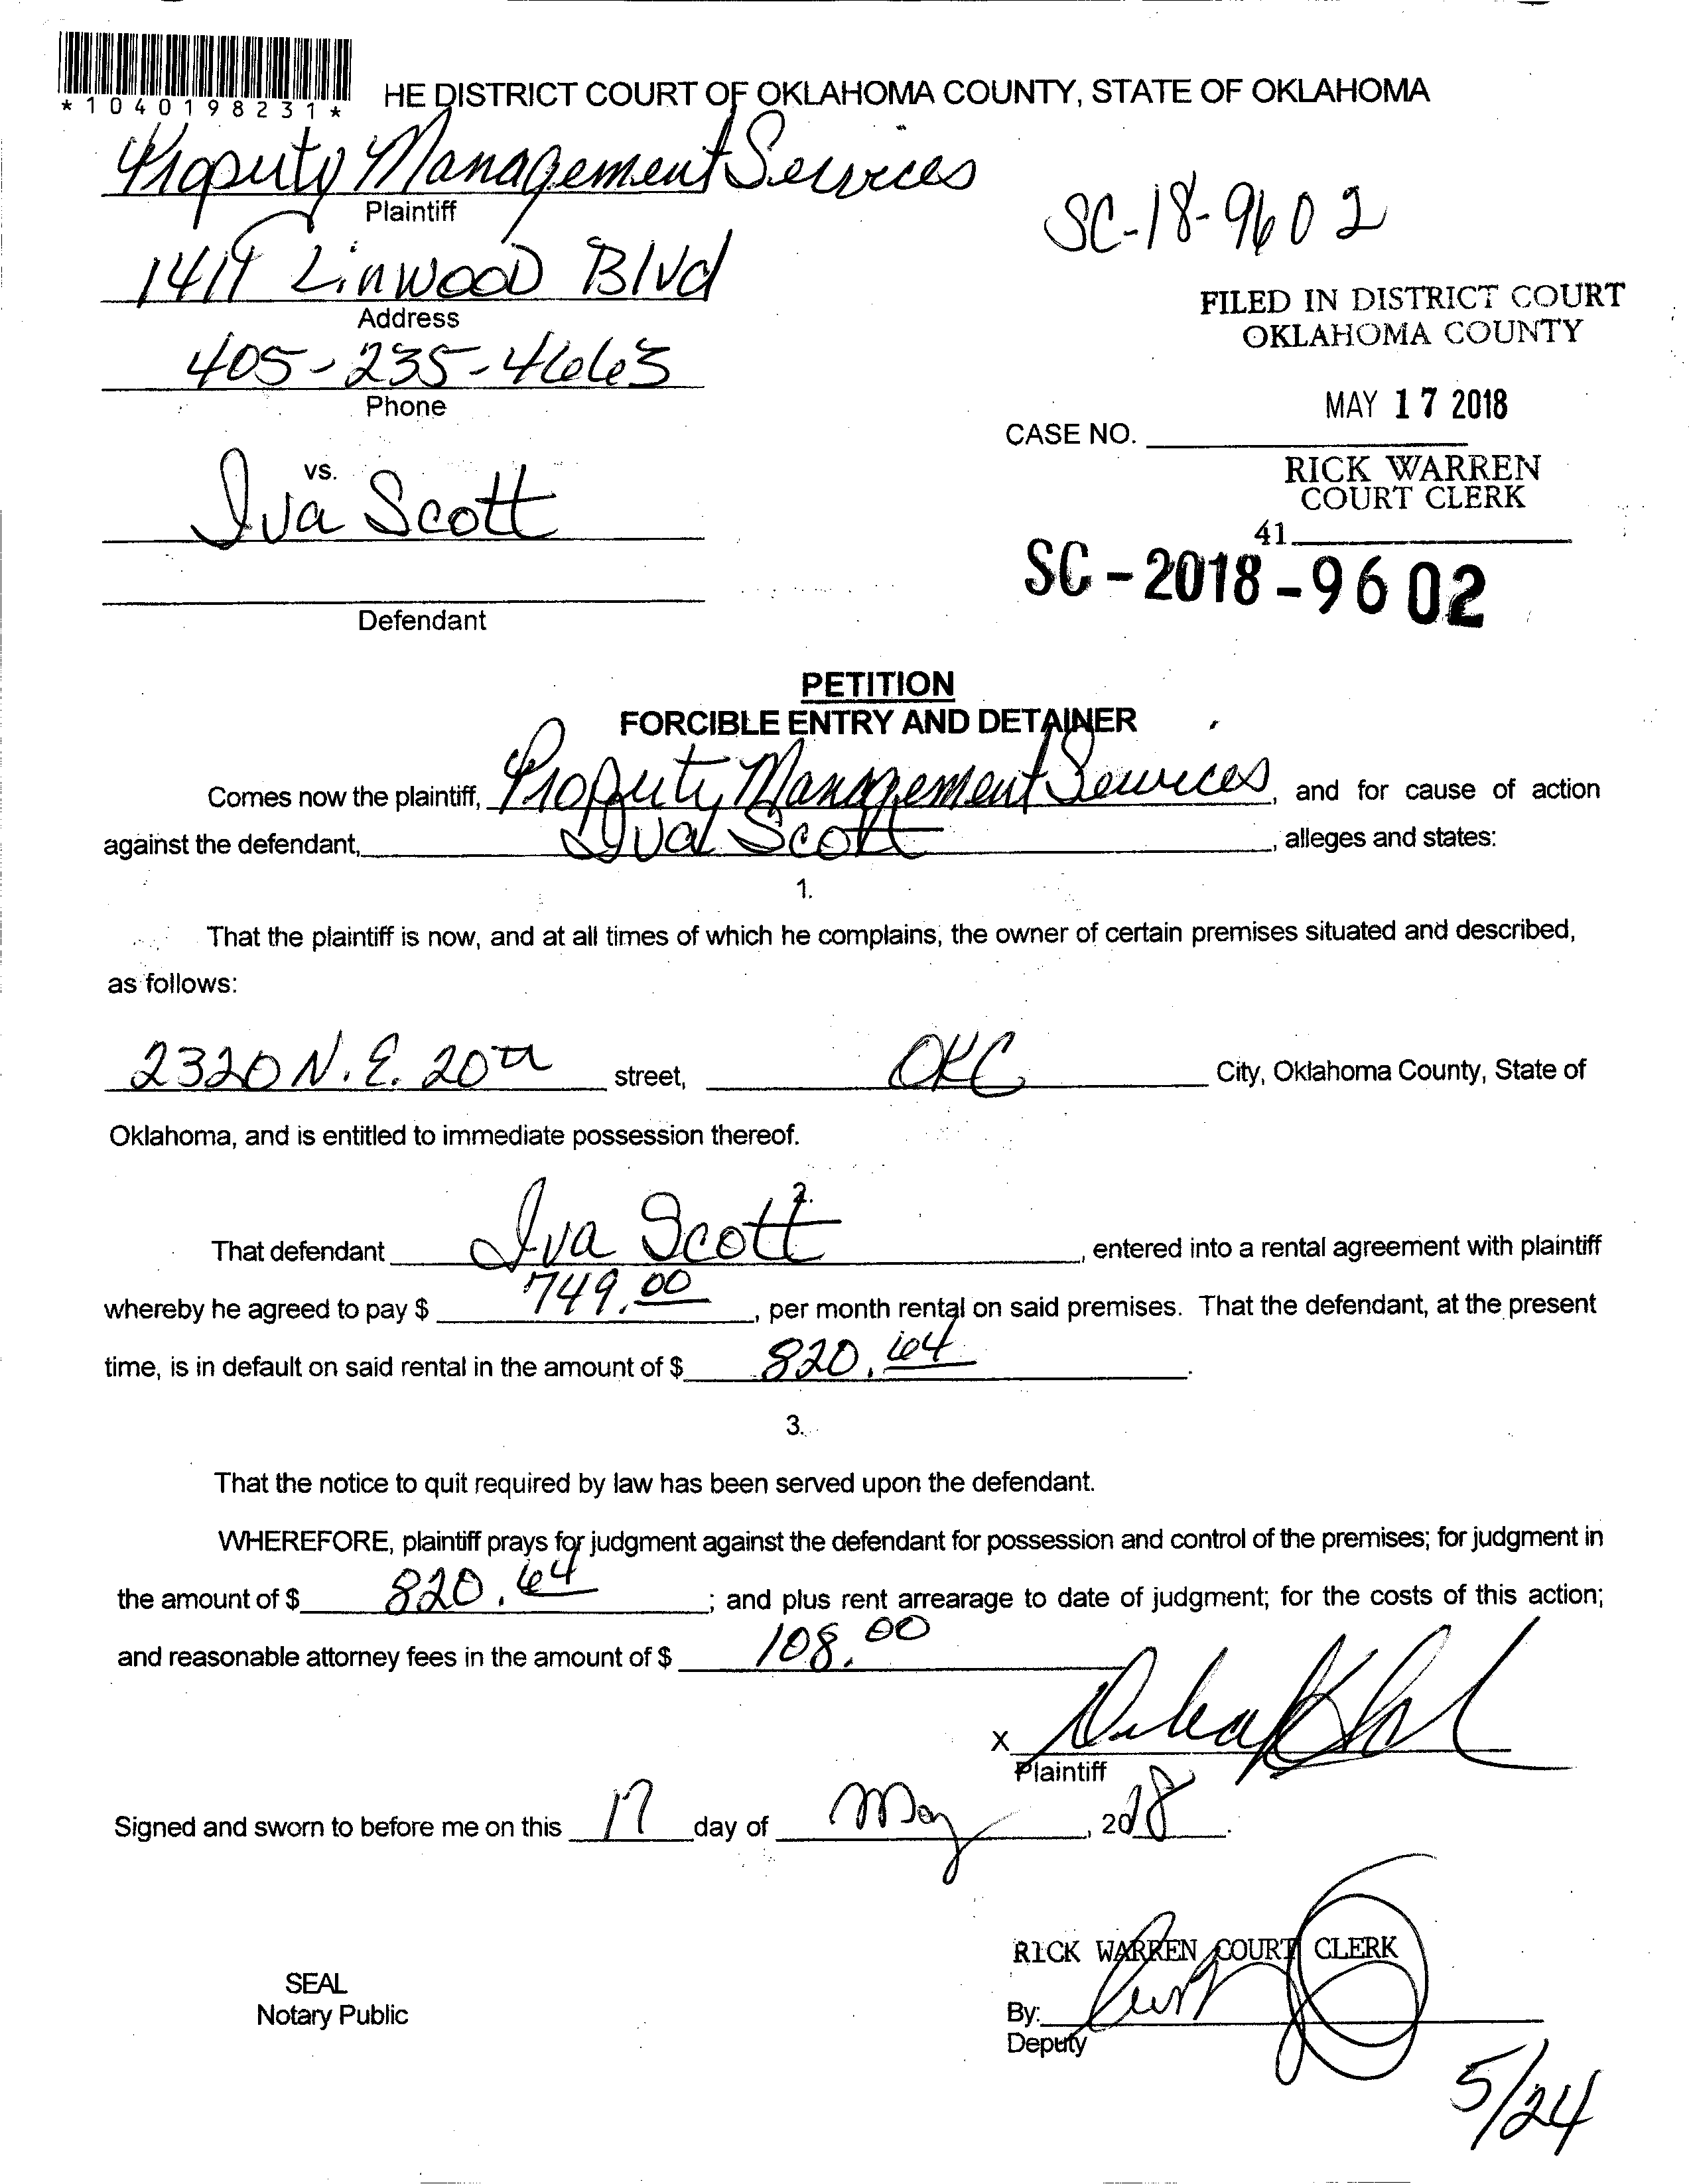 *1040198231*
HE DISTRICT COURT OF OKLAHOMA COUNTY, STATE OF OKLAHOMA
Property Management Services
Plaintiff
SC-18-9602
1419 Linwood Blvd
Address
FILED IN DISTRICT COURT
OKLAHOMA COUNTY
405-235-4663
Phone
MAY 17 2018
CASE NO.
vs.
RICK WARREN
COURT CLERK
Iva Scott
41
SC-2018-9602
Defendant
PETITION
FORCIBLE ENTRY AND DETAINER
Comes now the plaintiff, Property Management Services, and for cause of action
against the defendant, Iva Scott, alleges and states:
1.
That the plaintiff is now, and at all times of which he complains, the owner of certain premises situated and described,
as follows:
2320 N.E. 20th street, OKC City, Oklahoma County, State of
Oklahoma, and is entitled to immediate possession thereof.
2.
That defendant Iva Scott, entered into a rental agreement with plaintiff
whereby he agreed to pay $ 749.00, per month rental on said premises. That the defendant, at the present
time, is in default on said rental in the amount of $ 820.64.
3.
That the notice to quit required by law has been served upon the defendant.
WHEREFORE, plaintiff prays for judgment against the defendant for possession and control of the premises; for judgment in
the amount of $ 820.64; and plus rent arrearage to date of judgment; for the costs of this action;
and reasonable attorney fees in the amount of $ 108.00
X
Plaintiff
Signed and sworn to before me on this 17 day of May, 2018.
RICK WARREN COURT CLERK
SEAL
Notary Public
By:
Deputy
5/24